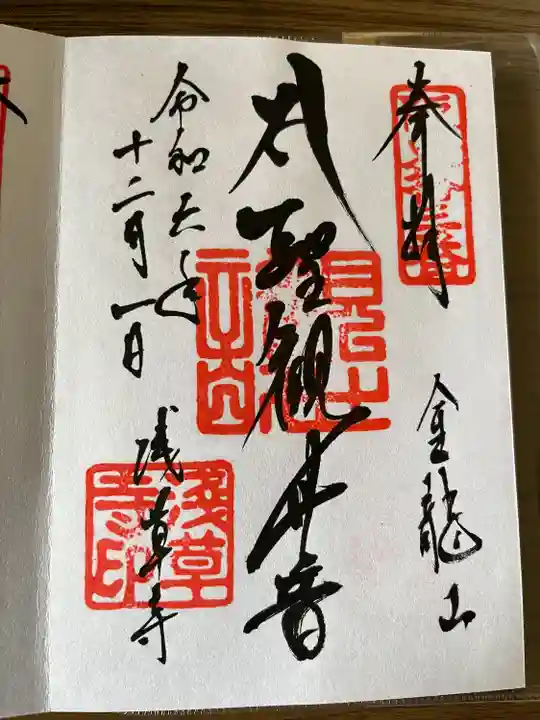 奉拝
金龍山
大聖観世音
令和五年
十二月一日
浅草寺
淺草寺印